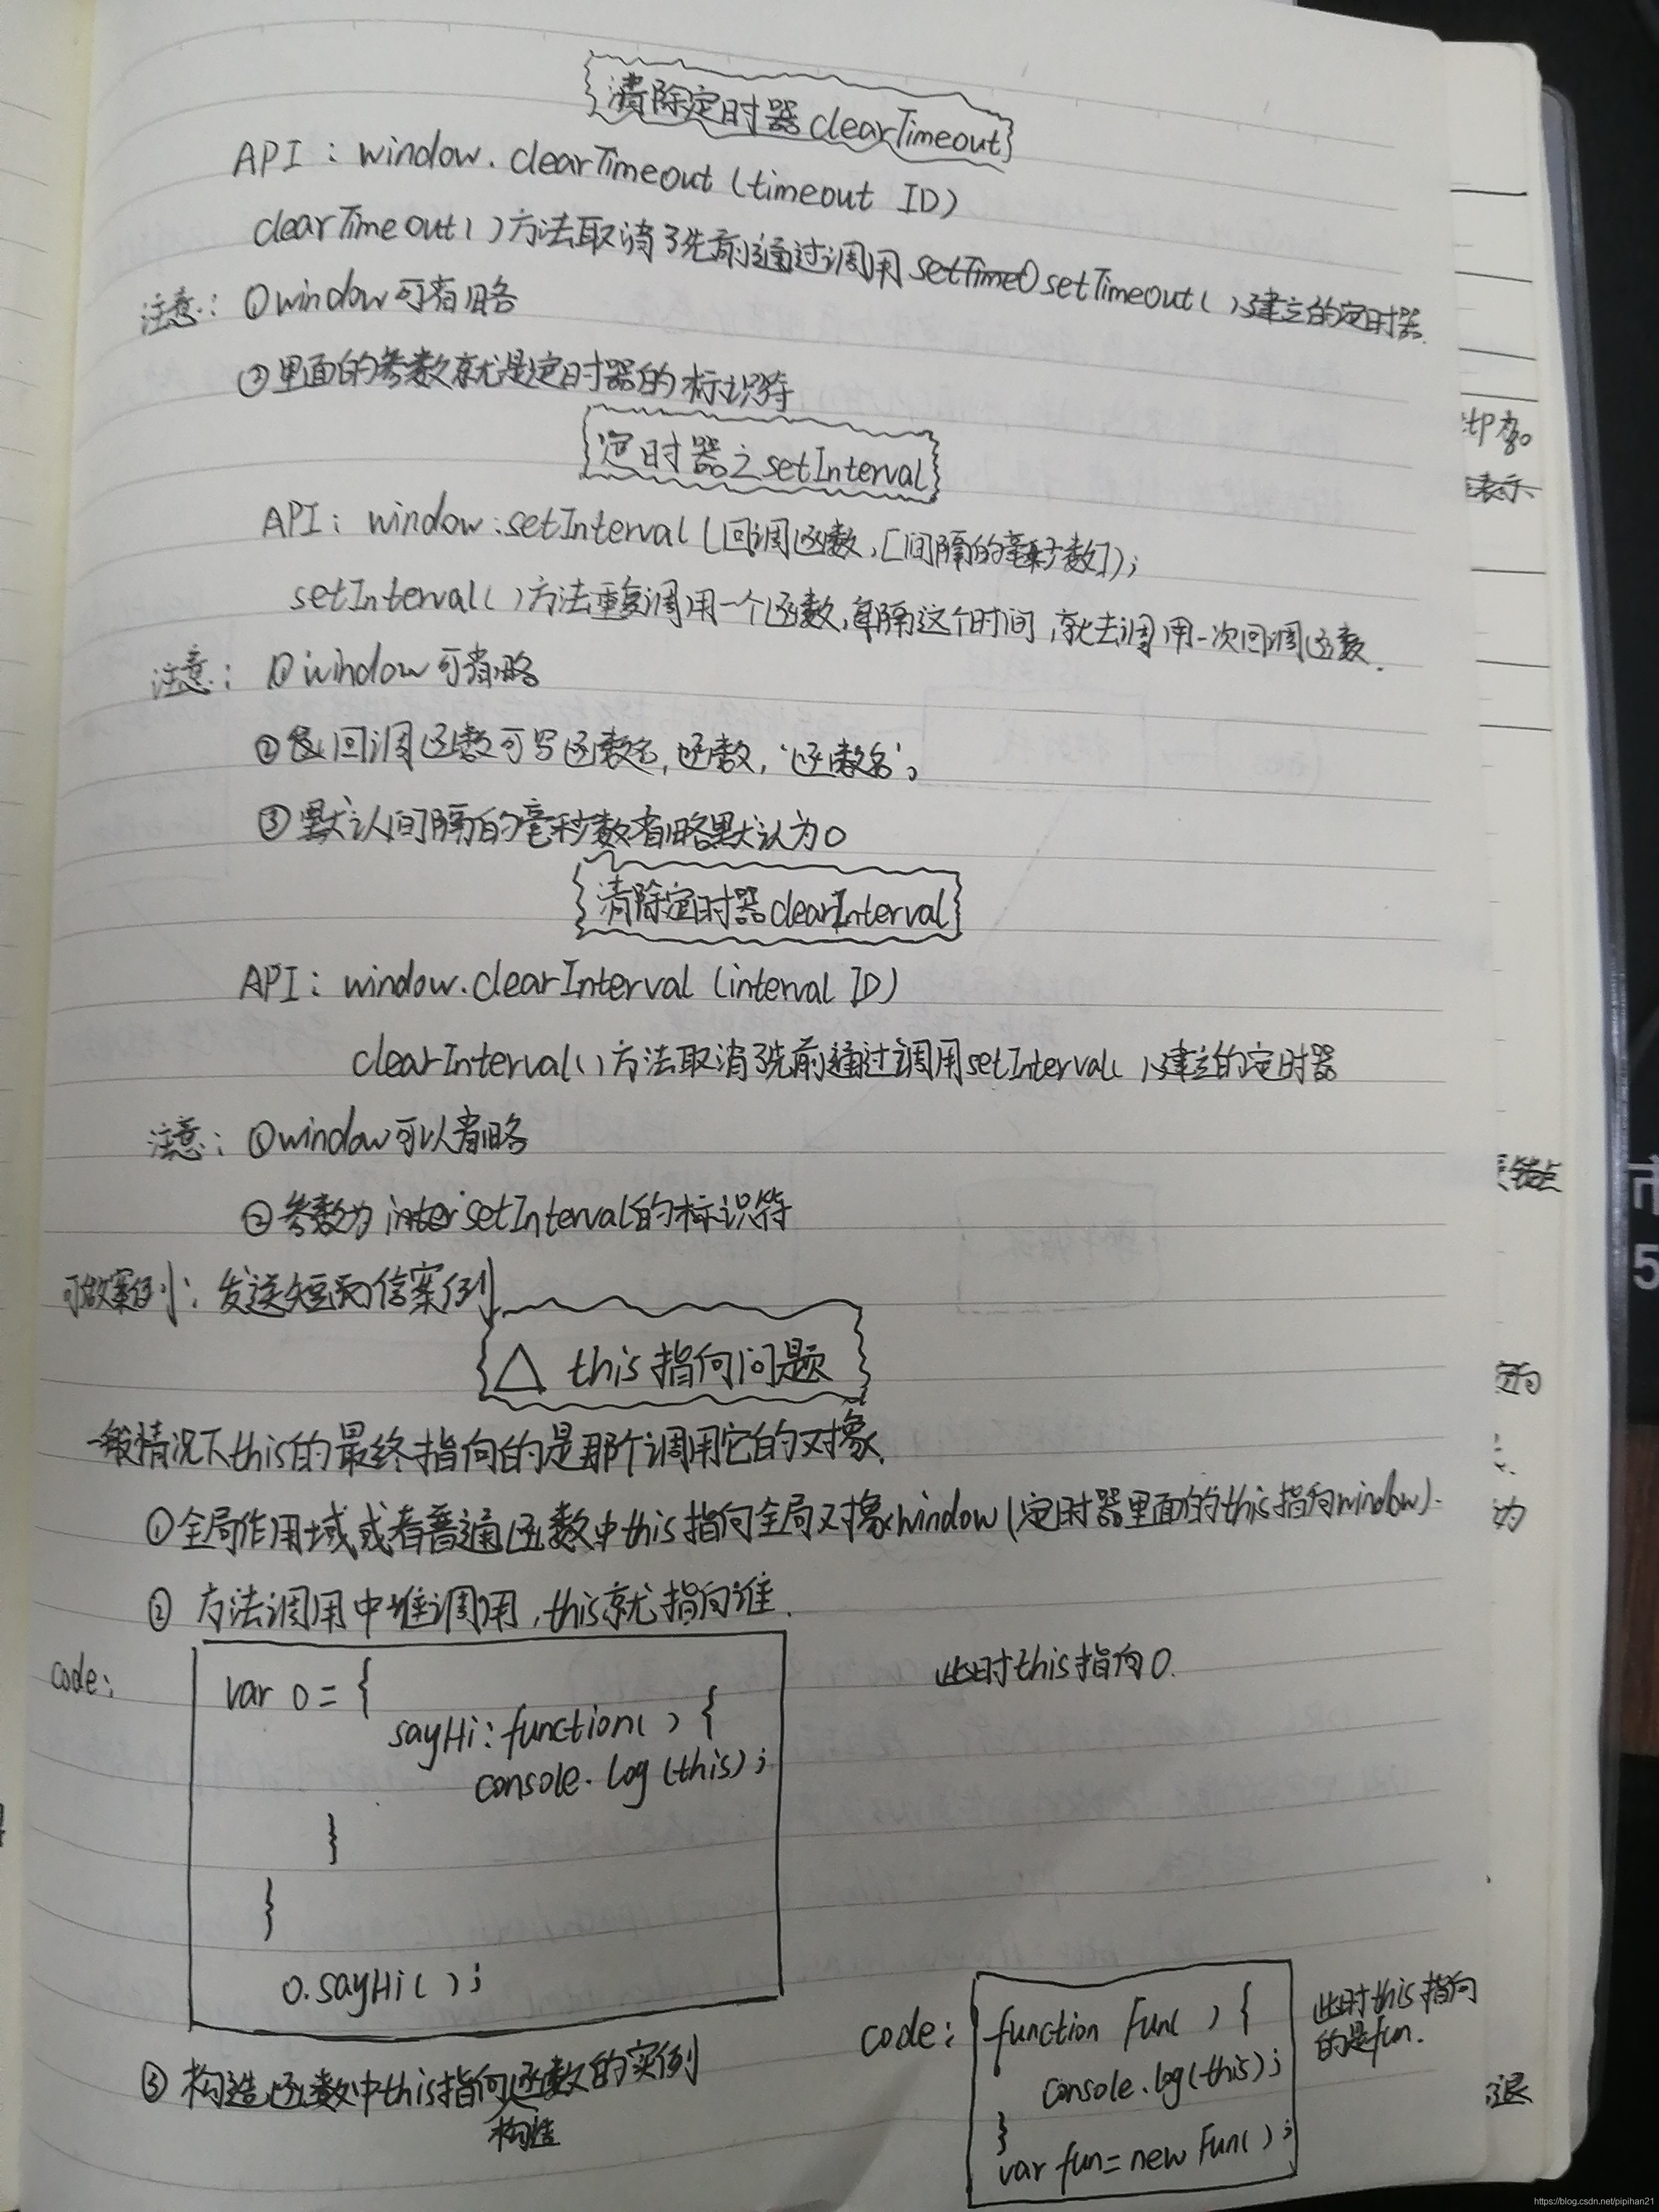 清除定时器clearTimeout
API：window.clearTimeout (timeout ID)
clearTimeout()方法取消了先前通过调用setTimeO setTimeout()建立的定时器.
注意：①window可省略
②里面的参数就是定时器的标识符
定时器之setInterval
API：window.setInterval(回调函数,[间隔的毫秒数]);
setInterval()方法重复调用一个函数,每隔这个时间,就去调用一次回调函数.
注意：①window可省略
②回调函数可写函数名,函数,'函数名';
③默认间隔的毫秒数省略默认为0
清除定时器clearInterval
API：window.clearInterval (interval ID)
clearInterval()方法取消了先前通过调用setInterval()建立的定时器
注意：①window可以省略
②参数为inter setInterval的标识符
可做案例：发送短信案例
△ this指向问题
一般情况下this的最终指向的是那个调用它的对象.
①全局作用域或者普通函数中this指向全局对象window(定时器里面的this指向window).
② 方法调用中谁调用,this就指向谁.
code:
var o = {
sayHi: function() {
console.log(this);
}
}
o.sayHi();
此时this指向o.
③构造函数中this指向构造函数的实例
code:
function Fun() {
console.log(this);
}
var fun = new Fun();
此时this指向
的是fun.
表示
为
退
5
https://blog.csdn.net/pipihan21